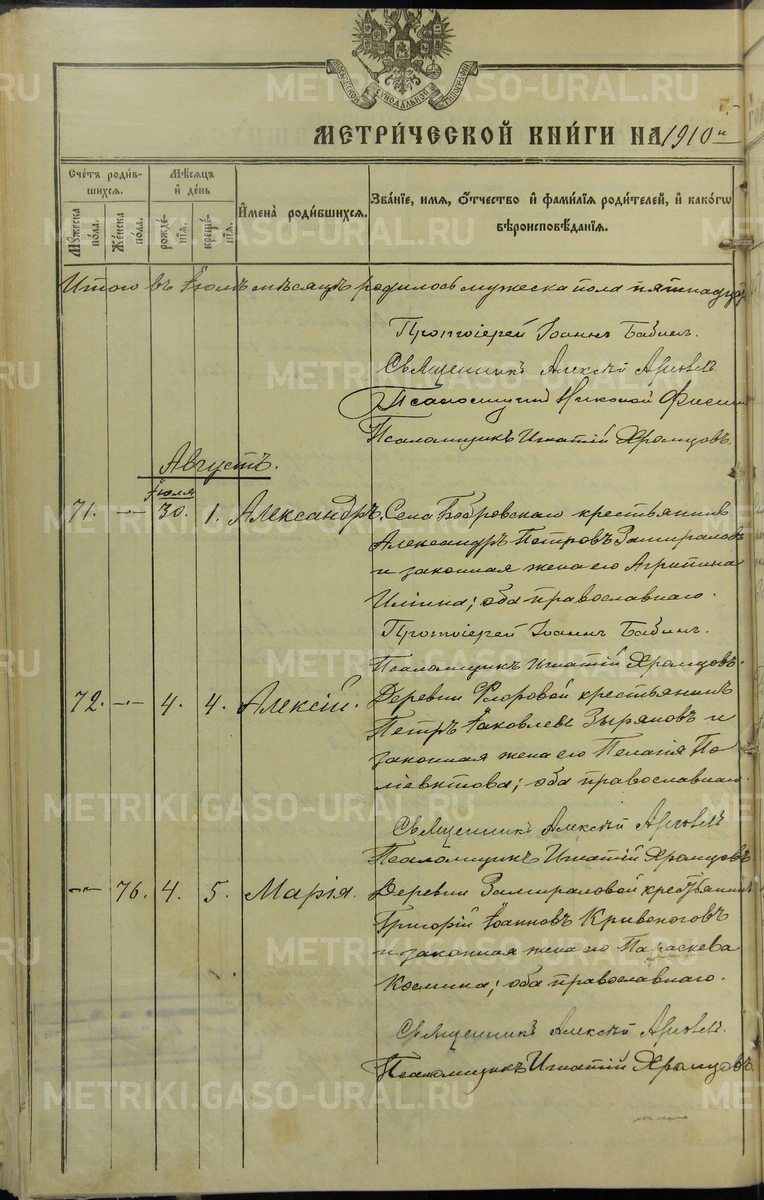 МЕТРИ́ЧЕСКОЙ КНИ́ГИ НА 1910 й
Сче́тъ роди́вшихся.
Мѣ́сяцъ и́ де́нь
И҆мена̀ роди́вшихся.
Зва́нїе, и́мя, о́тчество и́ фами́лїя роди́телей, и́ како́гѡ вѣроисповѣ́данїя.
Мꙋ́жеска по́ла.
Же́нска по́ла.
рожде́нїя.
креще́нїя.
Итого въ Іюлѣ мѣсяцѣ родилось мужеска пола пятнадца
Протоіерей Іоаннъ Бабинъ.
Священникъ Алексѣй
Псаломщикъ Николай
Псаломщикъ Игнатій Храмцовъ.
Августъ.
Іюля
71. — 30. 1. Александръ. Села Бобровскаго крестьянинъ
Александръ Петровъ Замираловъ
и законная жена его Агрипина
Илiина; оба православнаго.
Протоіерей Іоаннъ Бабинъ.
Псаломщикъ Игнатій Храмцовъ.
72. — 4. 4. Алексій. Деревни Флоровой крестьянинъ
Петръ Іаковлевъ Зыряновъ и
законная жена его Пелагія По
ліевктова; оба православнаго.
Священникъ Алексѣй
Псаломщикъ Игнатій Храмцовъ
— 76. 4. 5. Марія. Деревни Замираловой крестьянинъ
Григорій Іоанновъ Кривоноговъ
и законная жена его Параскева
Космина; оба православнаго.
Священникъ Алексѣй
Псаломщикъ Игнатій Храмцовъ.
METRIKI.GASO-URAL.RU